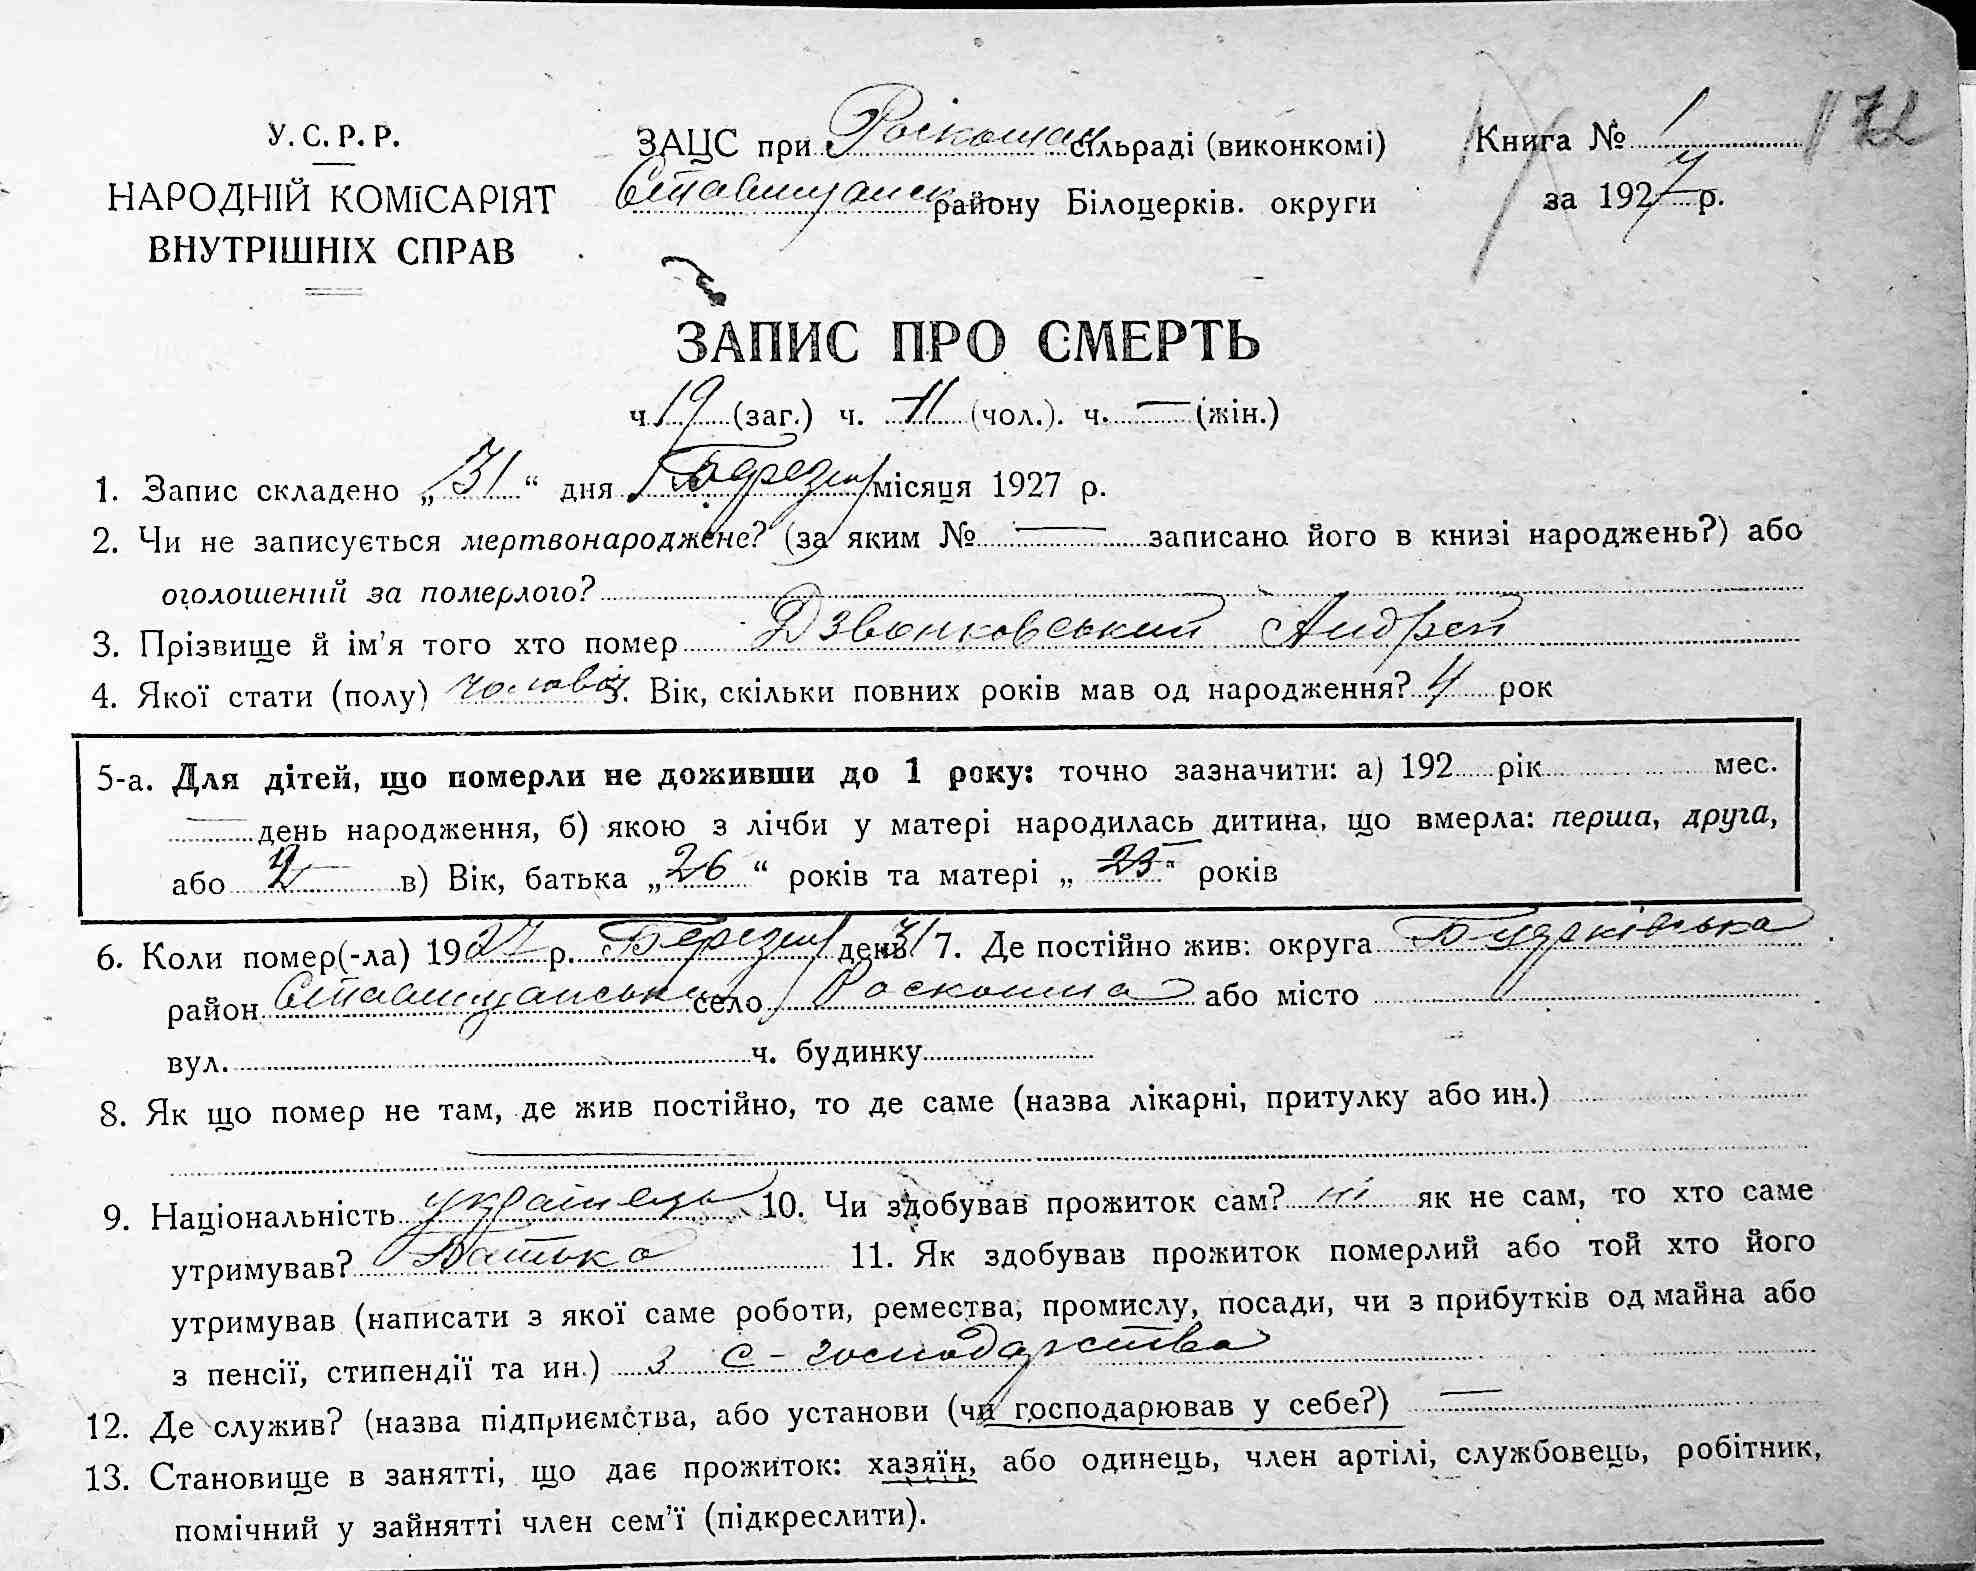 172
У. С. Р. Р.
НАРОДНІЙ КОМІСАРІЯТ
ВНУТРІШНІХ СПРАВ
ЗАЦС при Роскошан сільраді (виконкомі)
Ставищанск району Білоцерків. округи
Книга № 1
за 1927 р.
ЗАПИС ПРО СМЕРТЬ
ч. 19 (заг.) ч. 11 (чол.). ч. — (жін.)
1. Запис складено „31“ дня Березня місяця 1927 р.
2. Чи не записується мертвонароджене? (за яким № — записано його в книзі народжень?) або
оголошений за померлого?
3. Прізвище й ім'я того хто помер Дзвонковський Андрей
4. Якої стати (полу) чоловіч 5. Вік, скільки повних років мав од народження? 4 рок
5-а. Для дітей, що померли не доживши до 1 року: точно зазначити: а) 192 рік мес.
— день народження, б) якою з лічби у матері народилась дитина, що вмерла: перша, друга,
або 2 в) Вік, батька „26“ років та матері „23“ років
6. Коли помер(-ла) 1927 р. Березня день 31 7. Де постійно жив: округа
район Ставищанськ село Роскошна або місто
вул. ч. будинку
8. Як що помер не там, де жив постійно, то де саме (назва лікарні, притулку або ин.)
—
9. Національність українець 10. Чи здобував прожиток сам? ні як не сам, то хто саме
утримував? Батько 11. Як здобував прожиток померлий або той хто його
утримував (написати з якої саме роботи, ремества, промислу, посади, чи з прибутків од майна або
з пенсії, стипендії та ин.) з с-господарства
12. Де служив? (назва підприємства, або установи (чи господарював у себе?) —
13. Становище в занятті, що дає прожиток: хазяїн, або одинець, член артілі, службовець, робітник,
помічний у зайнятті член сем'ї (підкреслити).